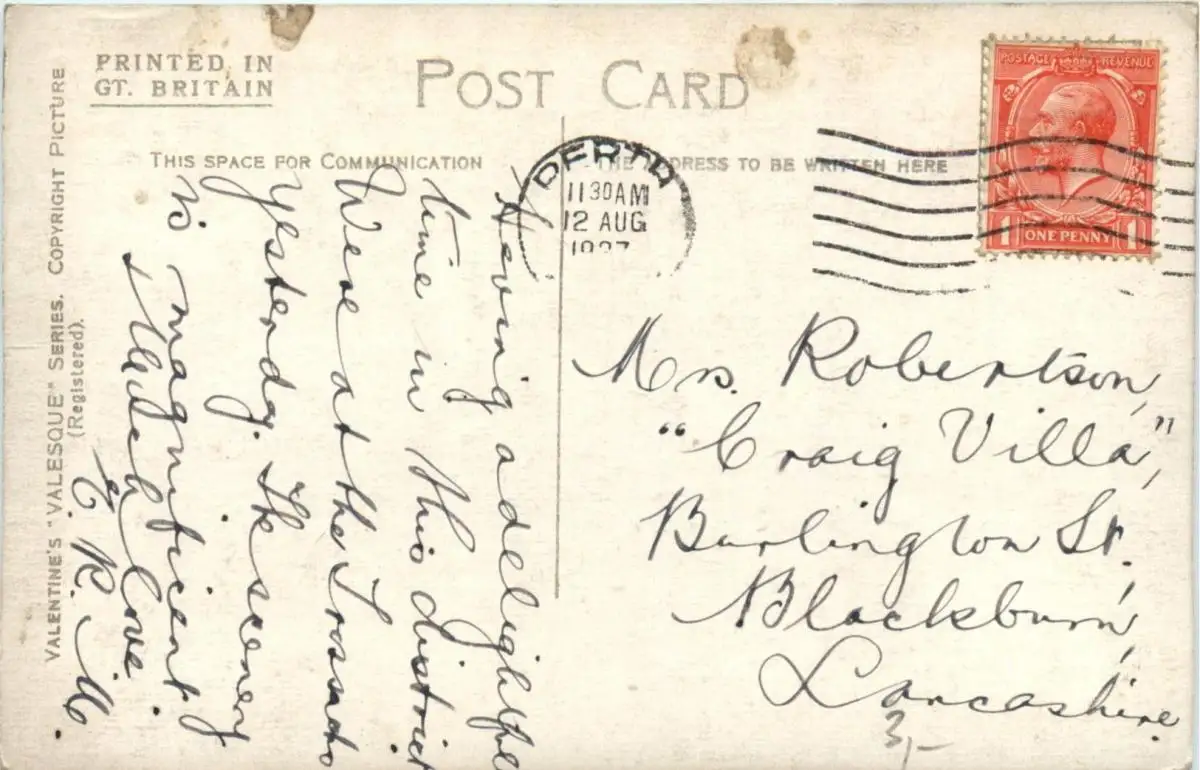 PRINTED IN
GT. BRITAIN
POST CARD
THIS SPACE FOR COMMUNICATION
THE ADDRESS TO BE WRITTEN HERE
VALENTINE'S "VALESQUE" SERIES. COPYRIGHT PICTURE
(Registered).
POSTAGE REVENUE
1 ONE PENNY 1
PERTH
11 30 AM
12 AUG
Having a delightful
time in this district
Were at the Trossachs
yesterday. The scenery
is magnificent.
Much love.
E. R. M.
Mrs. Robertson,
"Craig Villa",
Burlington St.,
Blackburn,
Lancashire.
3/-